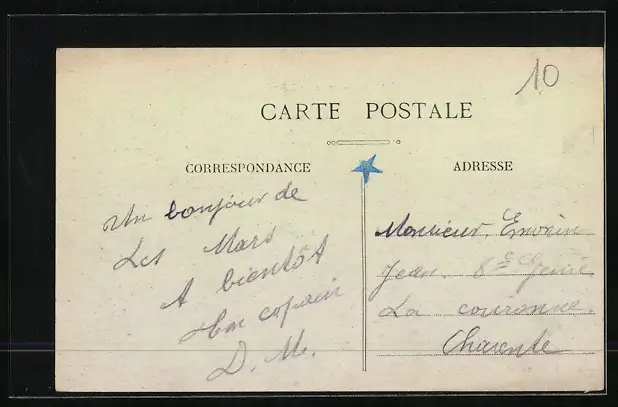 10
CARTE POSTALE
CORRESPONDANCE
Un bonjour de
Les Mars
A bientôt
Ton copain
D. M.
ADRESSE
Monsieur
Jean. 8e Génie
La couronne.
Charente